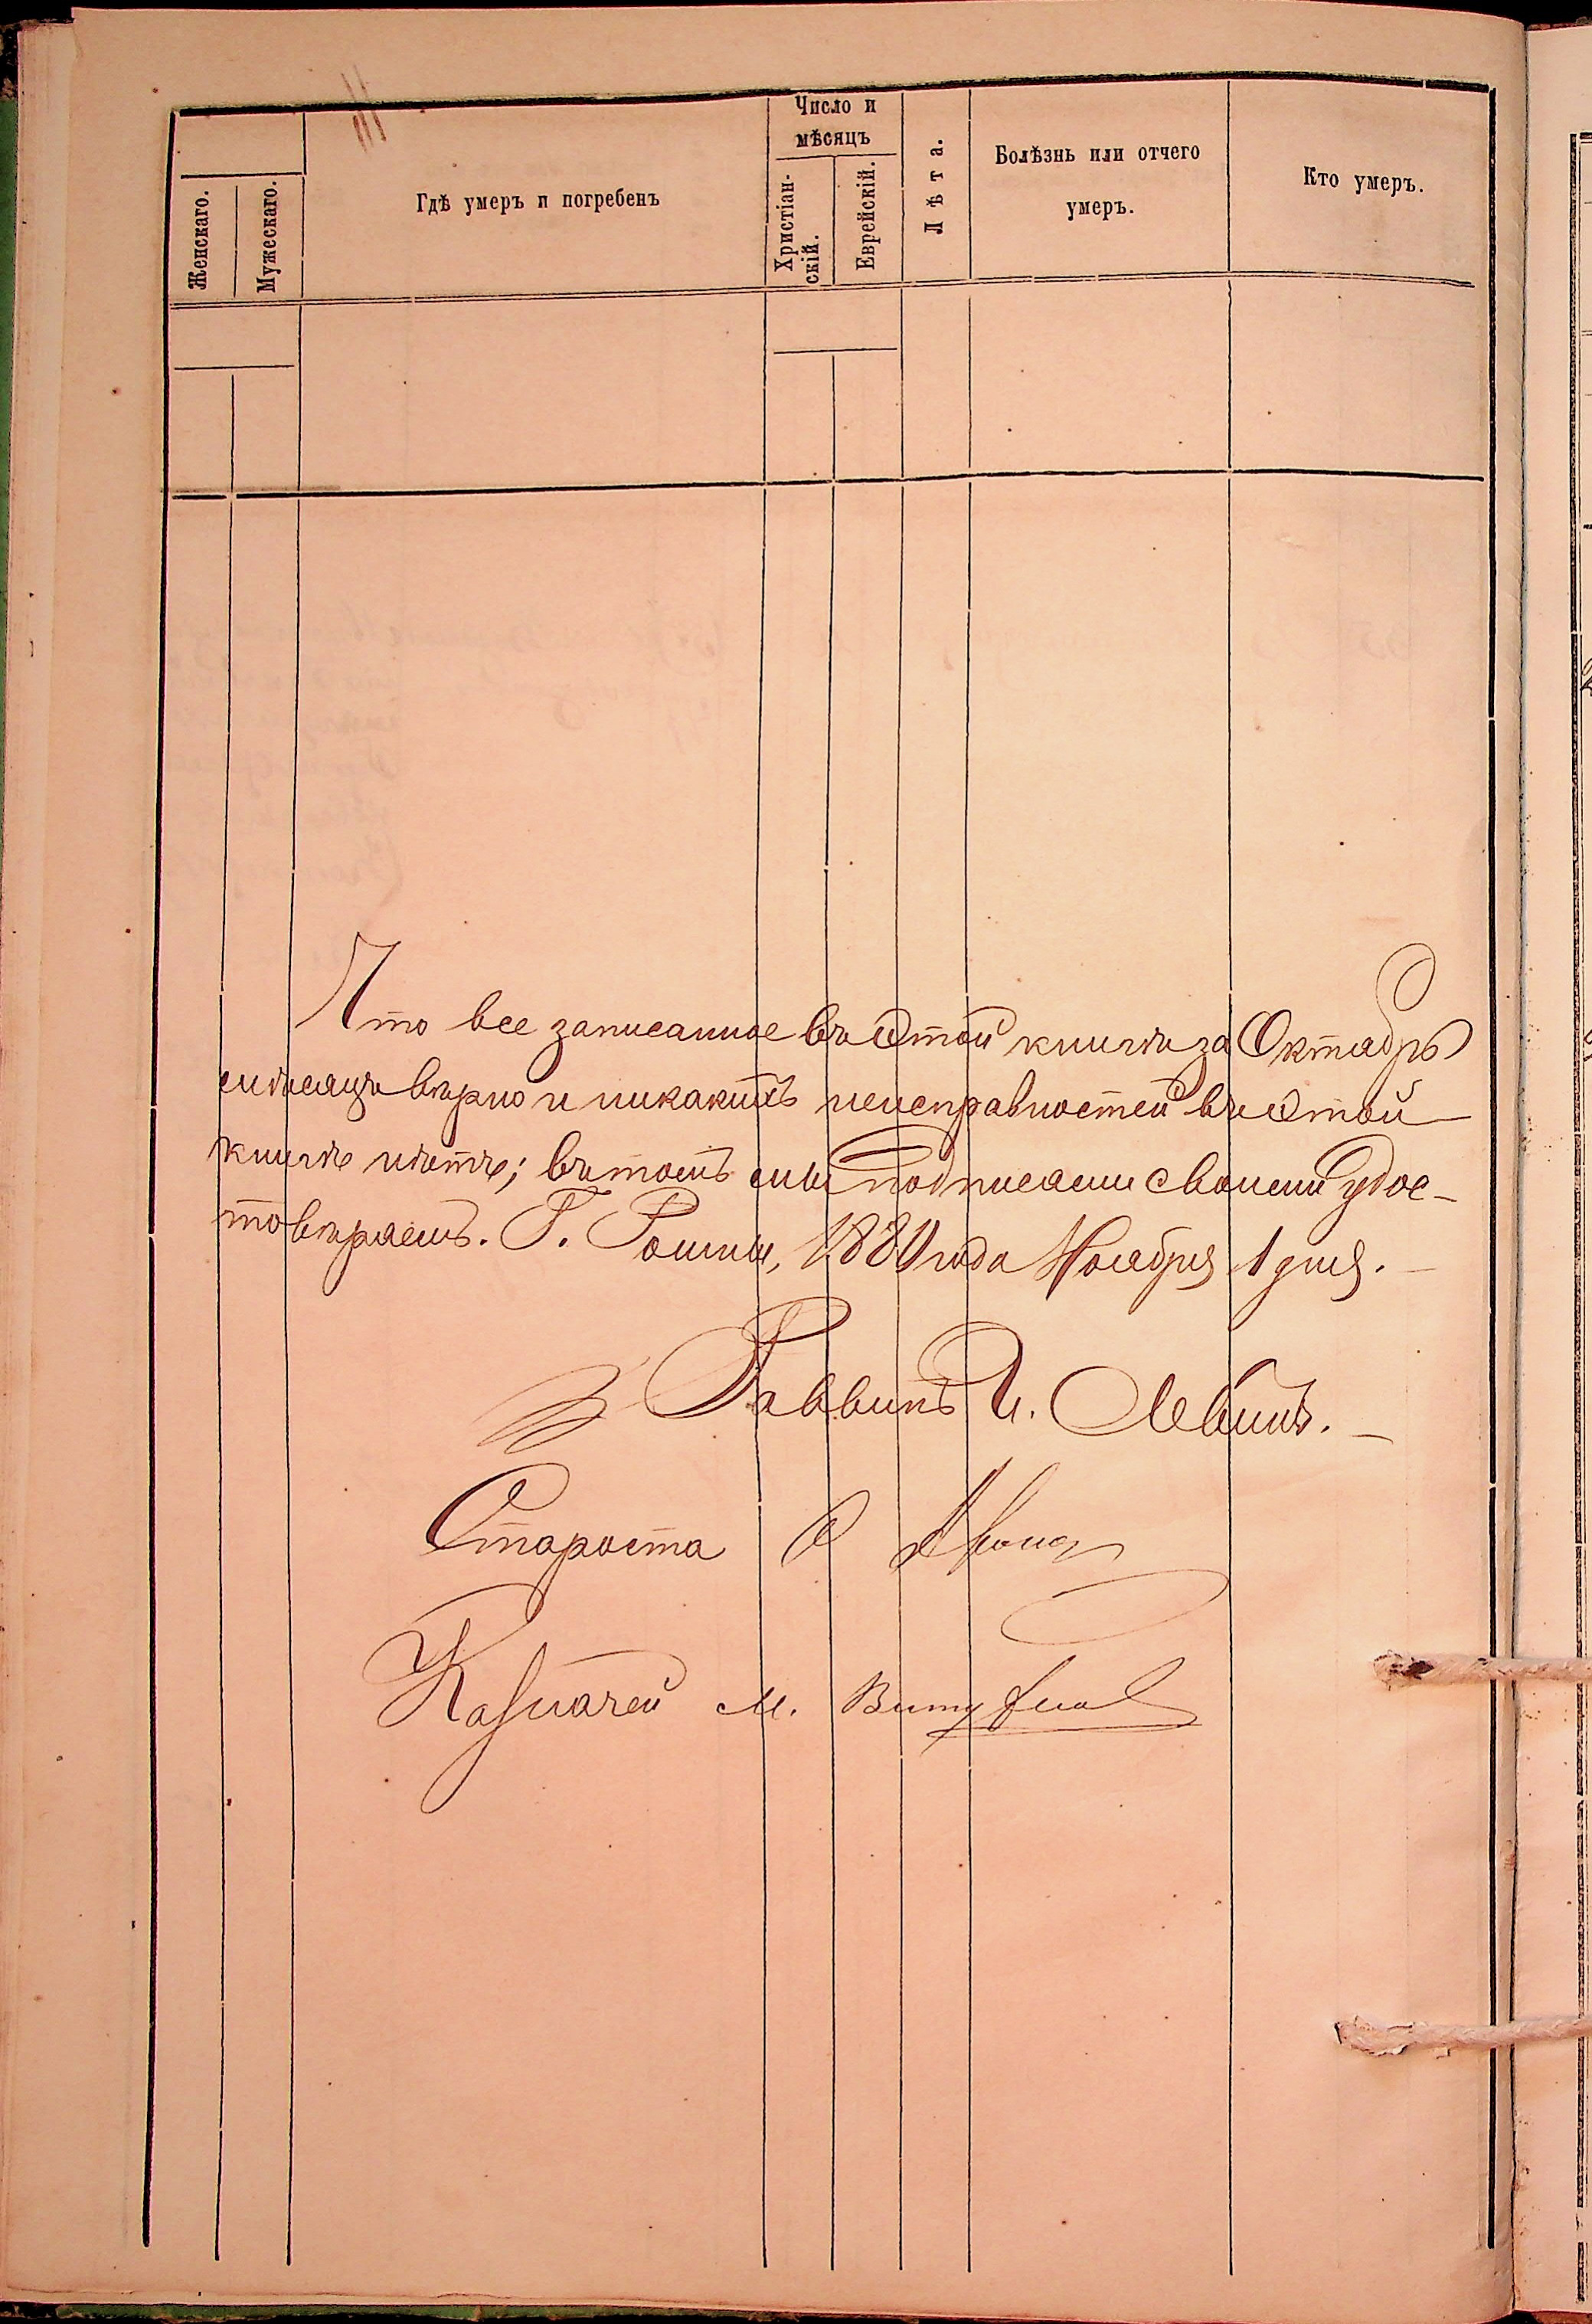 Женскаго.
Мужескаго.
Гдѣ умеръ и погребенъ
Число и
мѣсяцъ
Христіан-
скій.
Еврейскій.
Лѣта.
Болѣзнь или отчего
умеръ.
Кто умеръ.
Что все записанное въ этой книгѣ за Октябрь
мѣсяцъ вѣрно и никакихъ неисправностей въ этой
книгѣ нѣтъ; въ томъ мы подписями своими удос-
товѣряемъ. Г. Ромны, 188 года Ноября 1 дня.
Раввинъ И. Левинъ.
Староста
Казначей М.